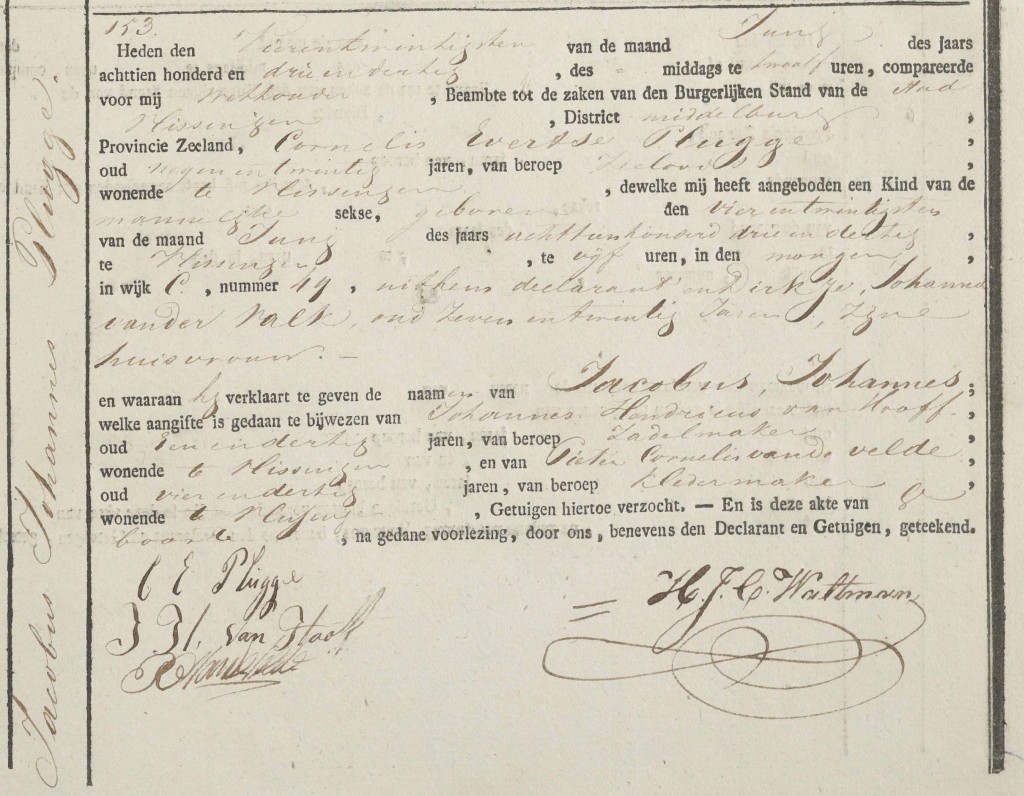 153.
Heden den Vierentwintigsten van de maand Junij des Jaars
achttien honderd en drie en dertig, des middags te twaalf uren, compareerde
voor mij Wethouder, Beambte tot de zaken van den Burgerlijken Stand van de Stad
Vlissingen, District middelburg,
Provincie Zeeland, Cornelis Evertse Plugge,
oud negen en twintig jaren, van beroep Zeeloods
wonende te Vlissingen, dewelke mij heeft aangeboden een Kind van de
mannelijke sekse, geboren den vier en twintigsten
van de maand Junij des jaars achttienhonderd drie en dertig,
te Vlissingen, te vijf uren, in den morgen,
in wijk C., nummer 49, uit hem declarant en Dirkje, Johanna
vander Valk, oud Zeven en twintig Jaren, Zijne
huisvrouw. —
en waaraan hij verklaart te geven de naamen van Jacobus, Johannes;
welke aangifte is gedaan te bijwezen van Johannes Hendricus van Hooff,
oud een en dertig jaren, van beroep Zadelmaker,
wonende te Vlissingen, en van Pieter Cornelis vande velde,
oud vier en dertig jaren, van beroep kledermaker,
wonende te Vlissingen, Getuigen hiertoe verzocht. — En is deze akte van
geboorte, na gedane voorlezing, door ons, benevens den Declarant en Getuigen, geteekend.
C E Plugge
J H. van Hooff
H. J. C. Waltman
Jacobus Johannes Plugge